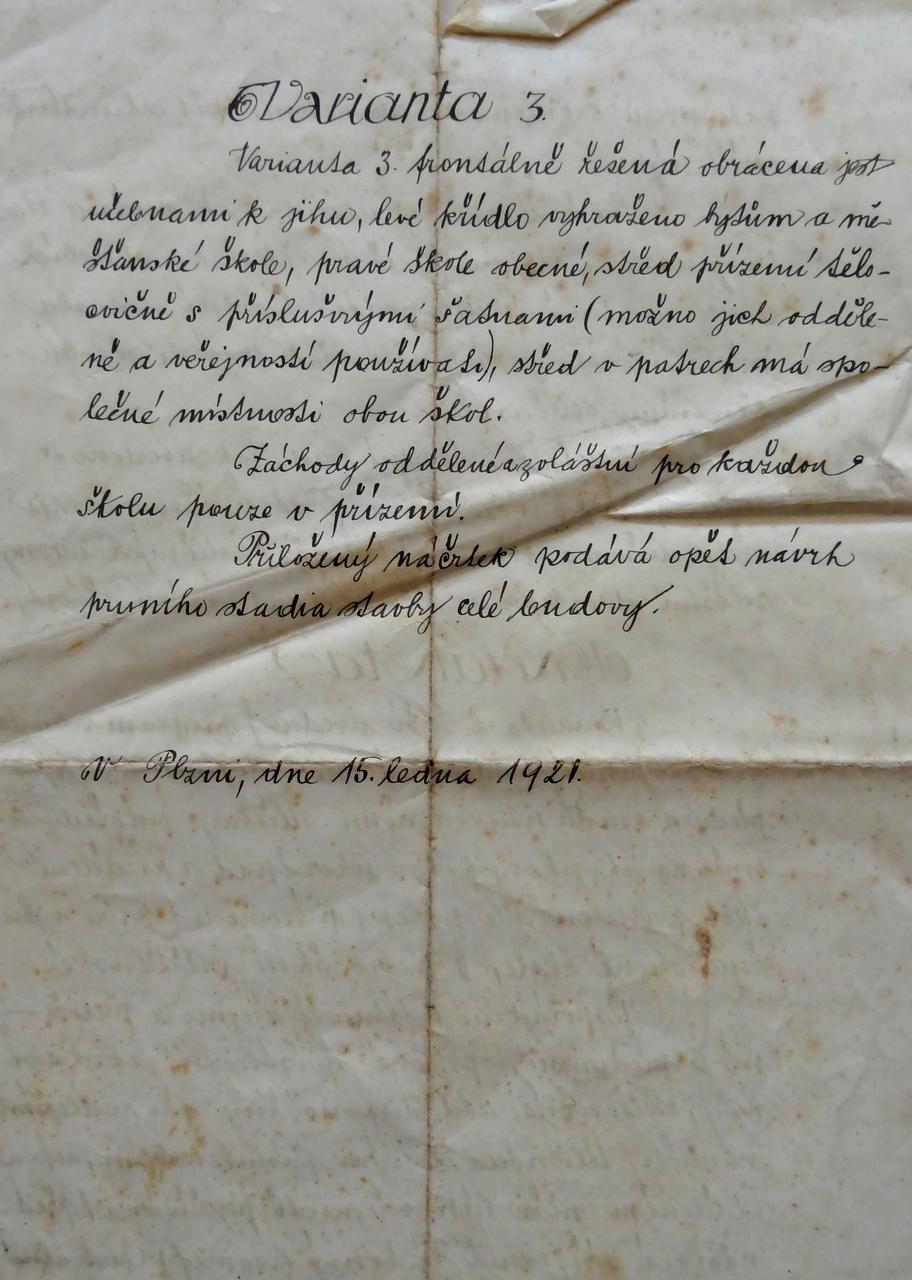 Varianta 3.
Varianta 3. frontálně řešená obrácena jest
učebnami k jihu, levé křídlo vyhraženo bytům a mě-
šťanské škole, pravé škole obecné, střed přízemí tělo-
cvičně s příslušnými šatnami (možno jich odděle-
ně a veřejností používati), střed v patrech má spo-
lečné místnosti obou škol.
Záchody oddělené a zvláštní pro každou
školu pouze v přízemí.
Přiložený náčrtek podává opět návrh
prvního stadia stavby celé budovy.
V Plzni, dne 15. ledna 1921.